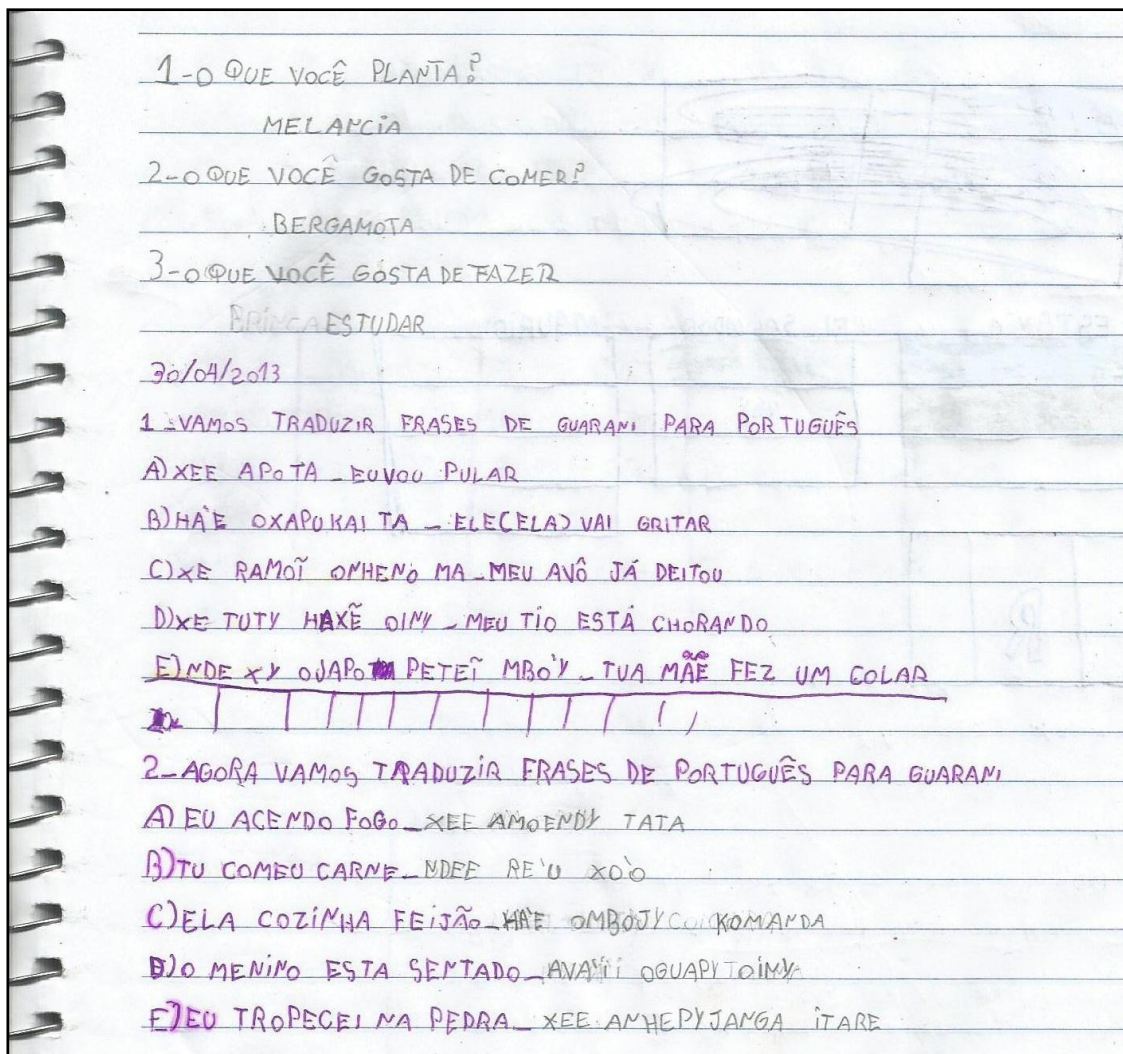 1-O QUE VOCÊ PLANTA?
MELANCIA
2-O QUE VOCÊ GOSTA DE COMER?
BERGAMOTA
3-O QUE VOCÊ GOSTA DE FAZER
BRINCA ESTUDAR
30/04/2013
1-VAMOS TRADUZIR FRASES DE GUARANI PARA PORTUGUÊS
A)XEE APO TA - EU VOU PULAR
B)HA'E OXAPUKAI TA - ELE(ELA) VAI GRITAR
C)XE RAMOĨ ONHENO MA - MEU AVÔ JÁ DEITOU
D)XE TUTY HAXẼ OINY - MEU TIO ESTÁ CHORANDO
E)NDE XY OJAPO PETEĨ MBO'Y - TUA MÃE FEZ UM COLAR
2-AGORA VAMOS TRADUZIR FRASES DE PORTUGUÊS PARA GUARANI
A) EU ACENDO FOGO - XEE AMOENDY TATA
B)TU COMEU CARNE - NDEE RE'U XO'O
C)ELA COZINHA FEIJÃO - HA'E OMBOJY KOMANDA
D)O MENINO ESTA SENTADO - OGUAPY
E)EU TROPECEI NA PEDRA - XEE ANHEPYJANGA ITARE